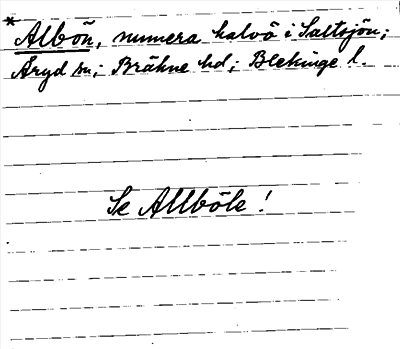 *Albön, numera halvö i Saltsjön;
Åryd sn; Bräkne hd; Blekinge l.
Se Allböle!